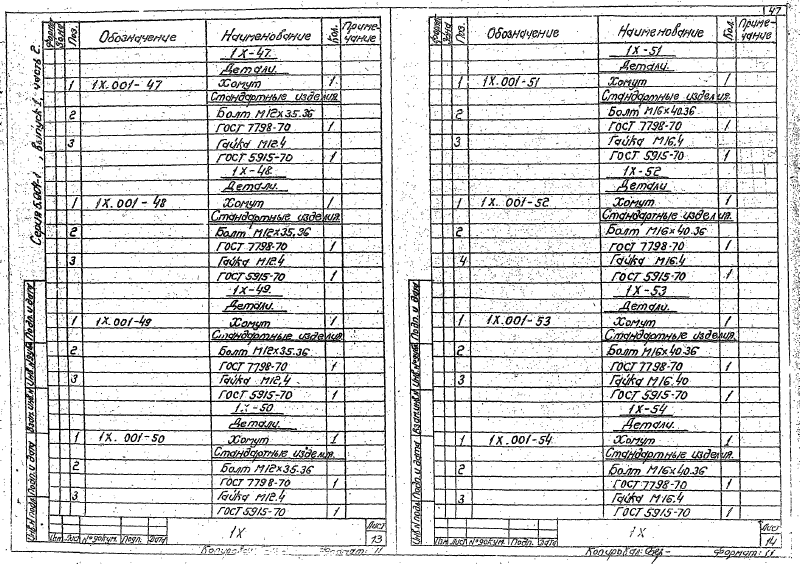 47
Серия 5.004-1, выпуск 1, часть 2.
Формат Зона Поз. Обозначение Наименование Кол. Примечание
1Х-47
Детали.
1 1Х.001-47 Хомут 1
Стандартные изделия
2 Болт М12х35.36
ГОСТ 7798-70 1
3 Гайка М12.4
ГОСТ 5915-70 1
1Х-48
Детали.
1 1Х.001-48 Хомут 1
Стандартные изделия.
2 Болт М12х35.36
ГОСТ 7798-70 1
3 Гайка М12.4
ГОСТ 5915-70 1
1Х-49
Детали.
1 1Х.001-49 Хомут 1
Стандартные изделия.
2 Болт М12х35.36
ГОСТ 7798-70 1
3 Гайка М12.4
ГОСТ 5915-70 1
1Х-50
Детали.
1 1Х.001-50 Хомут 1
Стандартные изделия
2 Болт М12х35.36
ГОСТ 7798-70 1
3 Гайка М12.4
ГОСТ 5915-70 1
Инв.№ подл. Подп. и дата Взам.инв.№ Инв.№ дубл. Подп. и дата
Изм. Лист № докум. Подп. Дата
1Х
Лист
13
Копировал Формат: 11
Формат Зона Поз. Обозначение Наименование Кол. Примечание
1Х-51
Детали.
1 1Х.001-51 Хомут 1
Стандартные изделия.
2 Болт М16х40.36
ГОСТ 7798-70 1
3 Гайка М16.4
ГОСТ 5915-70 1
1Х-52
Детали
1 1Х.001-52 Хомут 1
Стандартные изделия.
2 Болт М16х40.36
ГОСТ 7798-70 1
4 Гайка М16.4
ГОСТ 5915-70 1
1Х-53
Детали.
1 1Х.001-53 Хомут 1
Стандартные изделия.
2 Болт М16х40.36
ГОСТ 7798-70 1
3 Гайка М16.40
ГОСТ 5915-70 1
1Х-54
Детали.
1 1Х.001-54 Хомут 1
Стандартные изделия.
2 Болт М16х40.36
ГОСТ 7798-70 1
3 Гайка М16.4
ГОСТ 5915-70 1
Инв.№ подл. Подп. и дата Взам.инв.№ Инв.№ дубл. Подп. и дата
Изм. Лист № докум. Подп. Дата
1Х
Лист
14
Копировал: Формат: 11